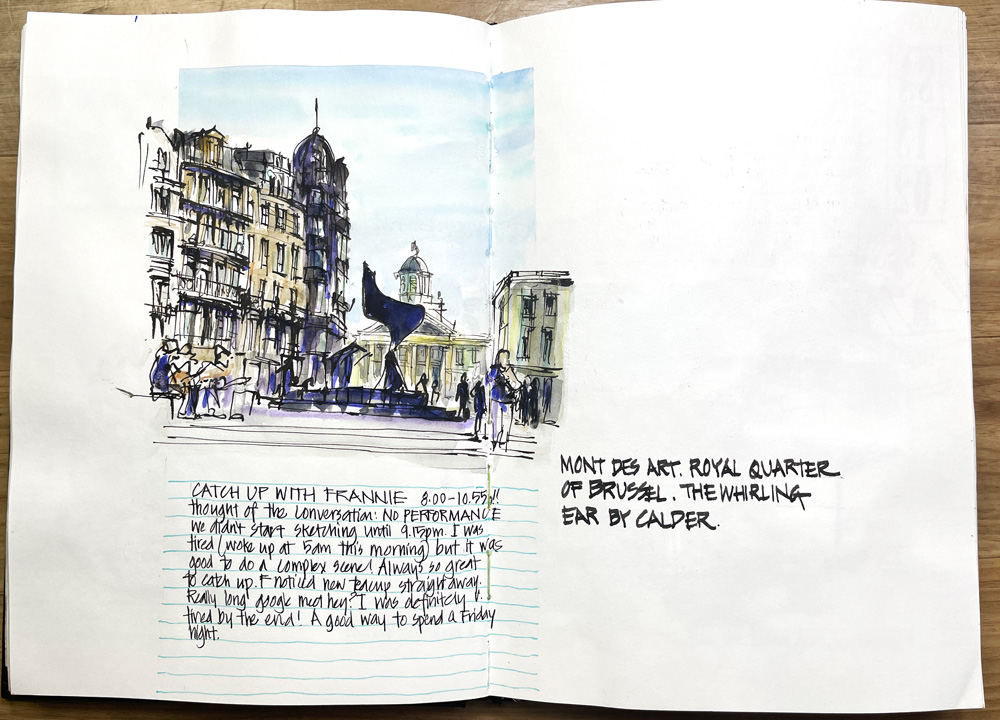 CATCH UP WITH FRANNIE 8.00-10.55p!!
thought of the Conversation: NO PERFORMANCE
we didn't start sketching until 9.15pm. I was
tired (woke up at 5am this morning) but it was
good to do a complex scene! Always so great
to catch up. F noticed new teacup straight away.
Really long google meet hey? I was definitely
tired by the end! A good way to spend a Friday
night.
MONT DES ART. ROYAL QUARTER
OF BRUSSEL. THE WHIRLING
EAR BY CALDER.